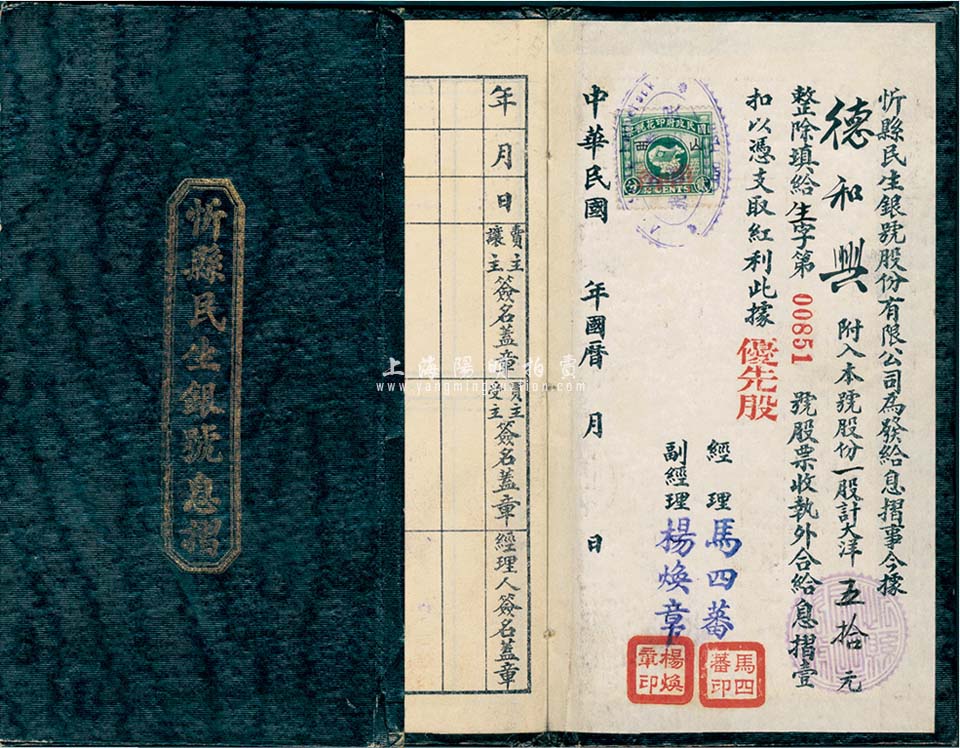 忻縣民生銀號股份有限公司為發給息摺事今據
德和興 附入本號股份一股計大洋五拾元
整除填給生字第00851號股票收執外合給息摺壹
扣以憑支取紅利此據
優先股
經理 馬四蕃
副經理 楊煥章
馬四蕃印
楊煥章印
中華民國 年國曆 月 日
國民政府印花稅票
山西
2 CENTS
年月日
賣主讓主簽名蓋章
買主受主簽名蓋章
經理人簽名蓋章
忻縣民生銀號息摺
上海陽明拍賣
www.yangmingauction.com